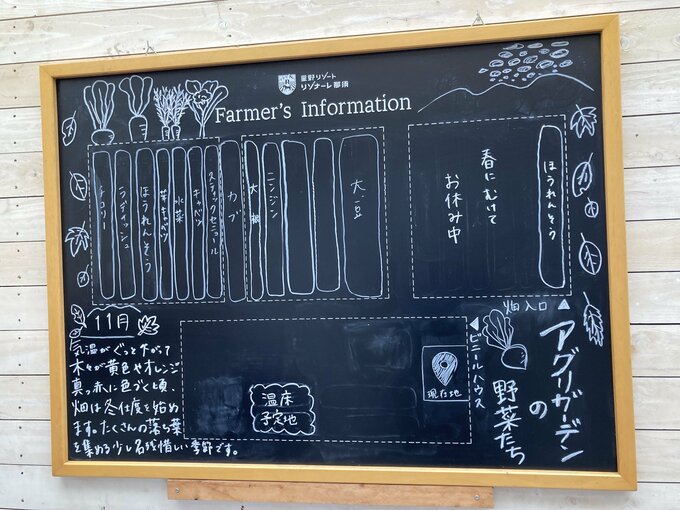 星野リゾート
リゾナーレ那須
Farmer's Information
チコリー
ラディッシュ
ほうれんそう
芽キャベツ
水菜
キャベツ
スティックセニョール
カブ
大根
ニンジン
大豆
春にむけて
お休み中
ほうれんそう
畑入口
アグリガーデン
の
野菜たち
ビニールハウス
現在地
温床
予定地
11月
気温がぐっと下がって
木々が黄色やオレンジ
真っ赤に色づく頃、
畑は冬仕度を始め
ます。たくさんの落ち葉
を集める少し名残惜しい季節です。